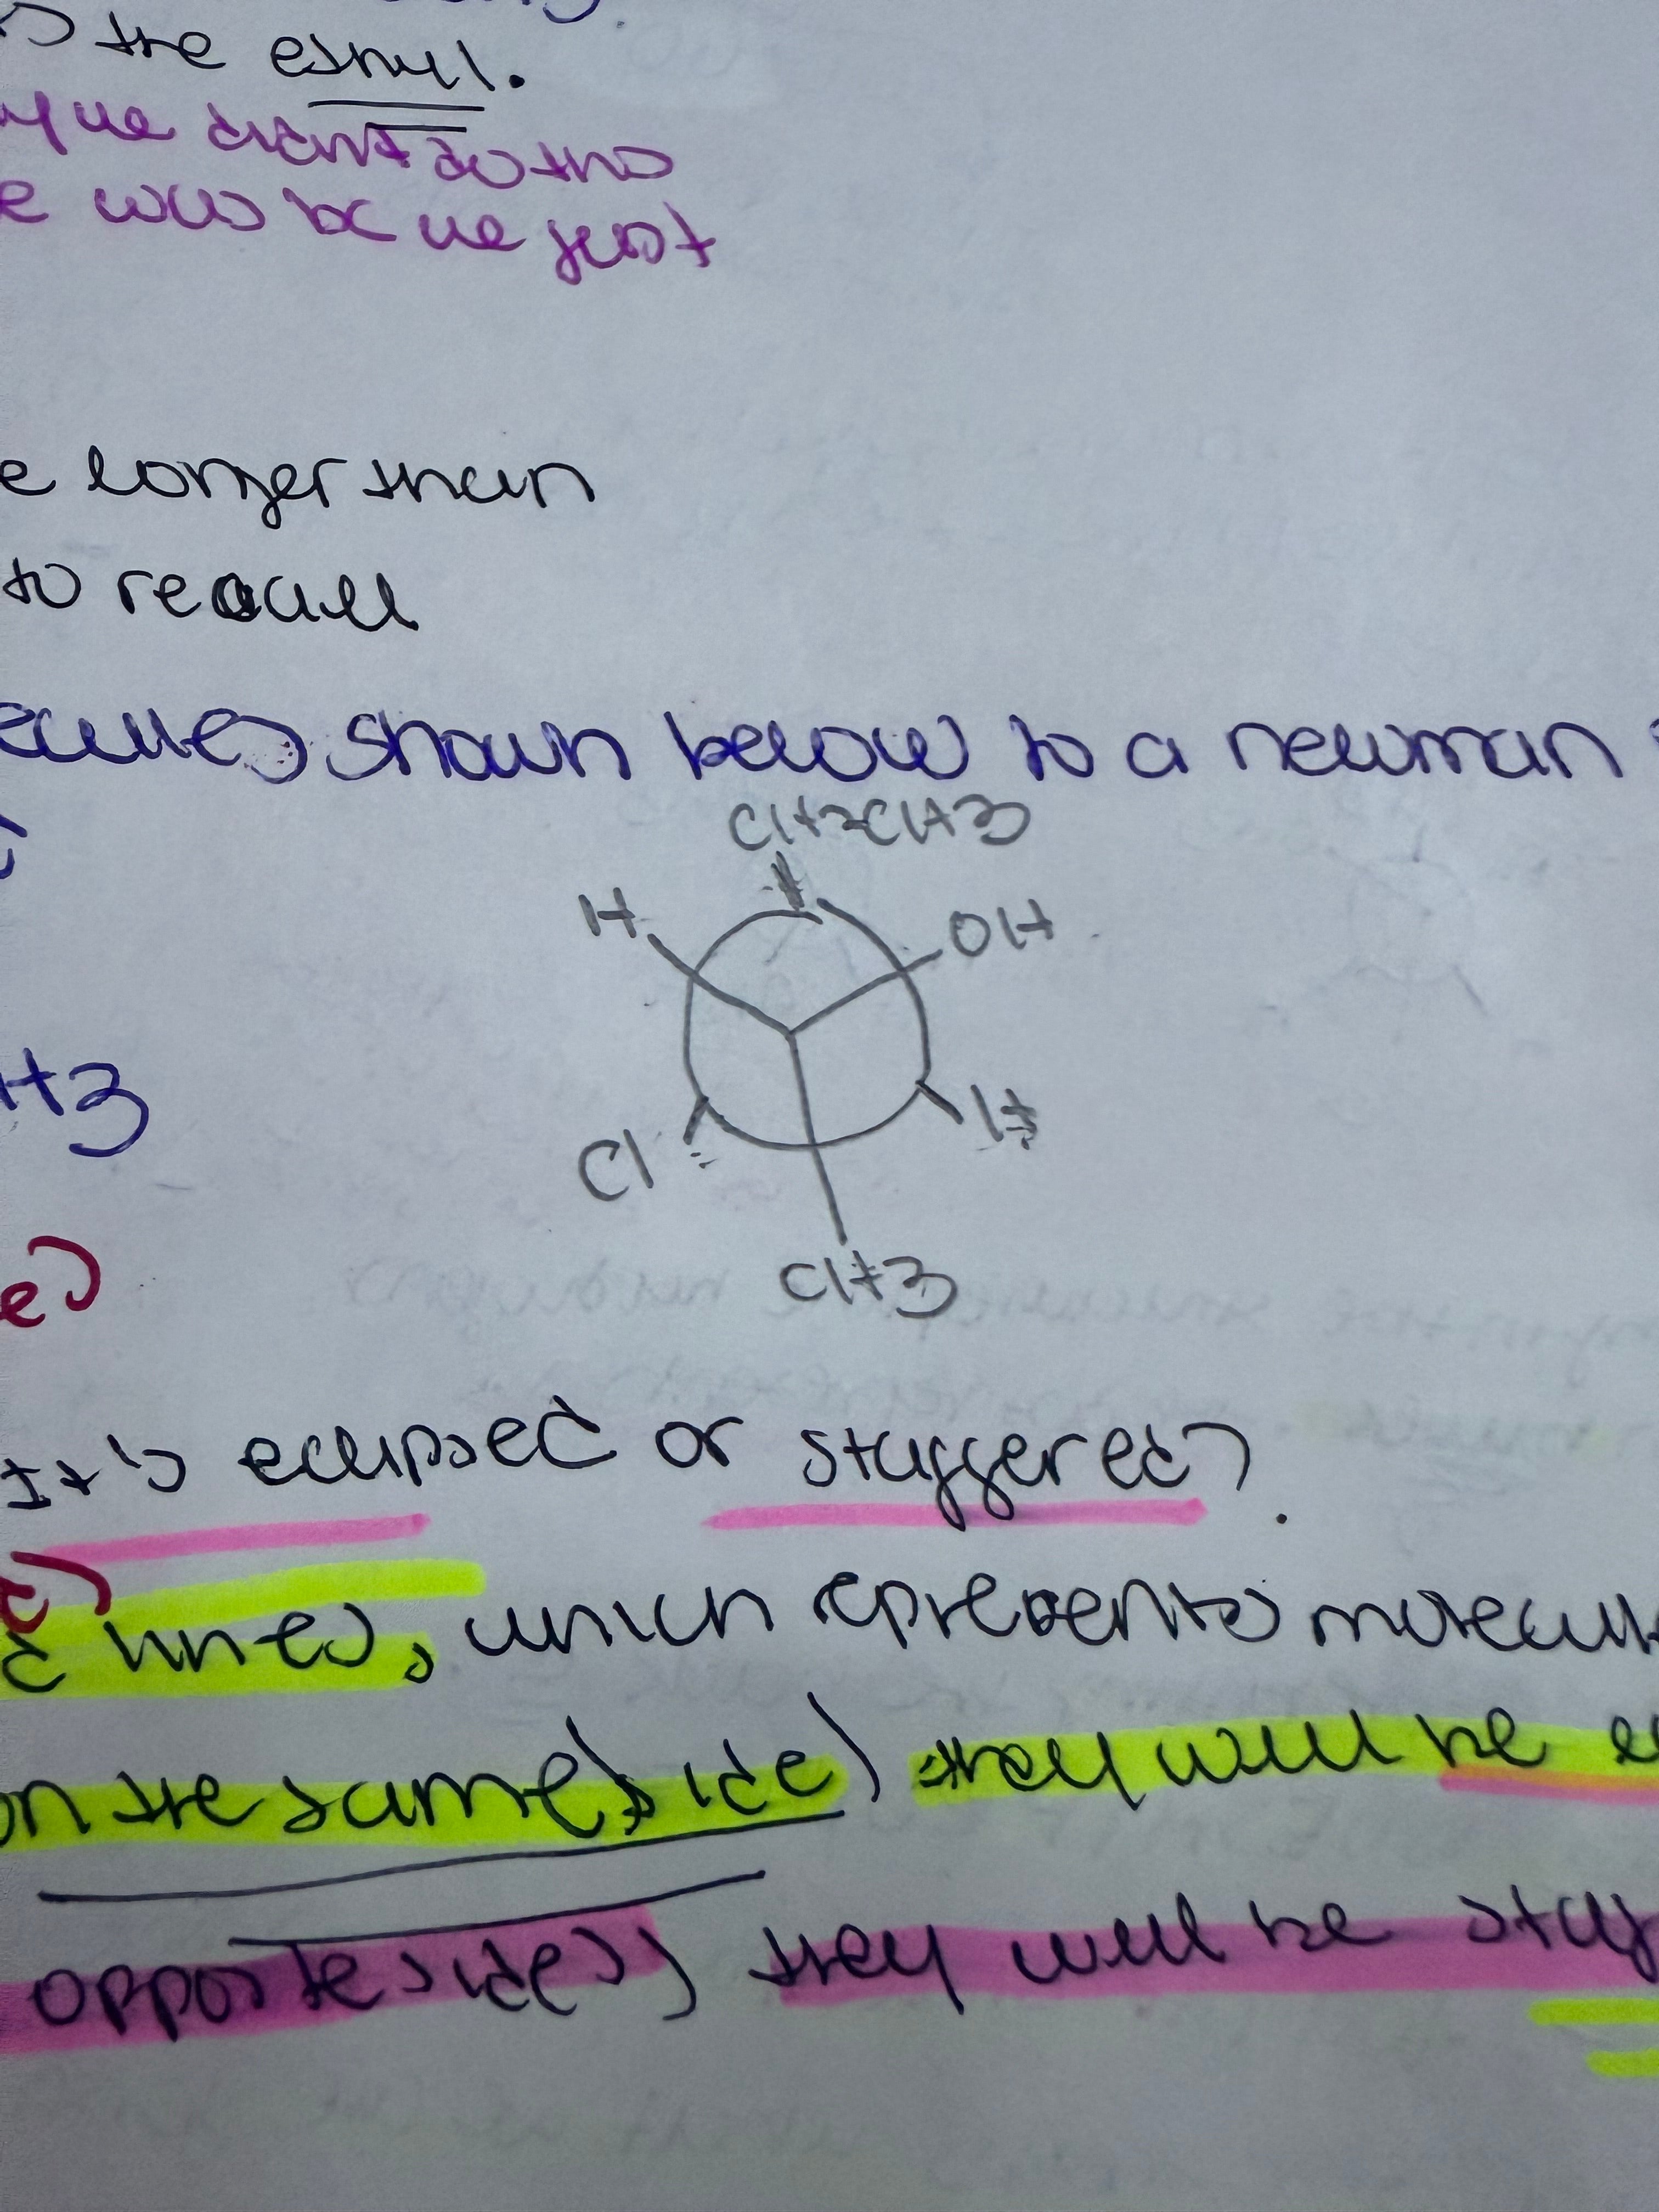 the ethyl.
we didnt do this
e was bc we just
e longer than
to recall
ecules shown below to a newman
CH2CH3
H
OH
H3
Cl
H
CH3
e)
It's eclipsed or staggered?
lines, which represents molecul
on the same side) they will be e
opposite sides) they will be stag